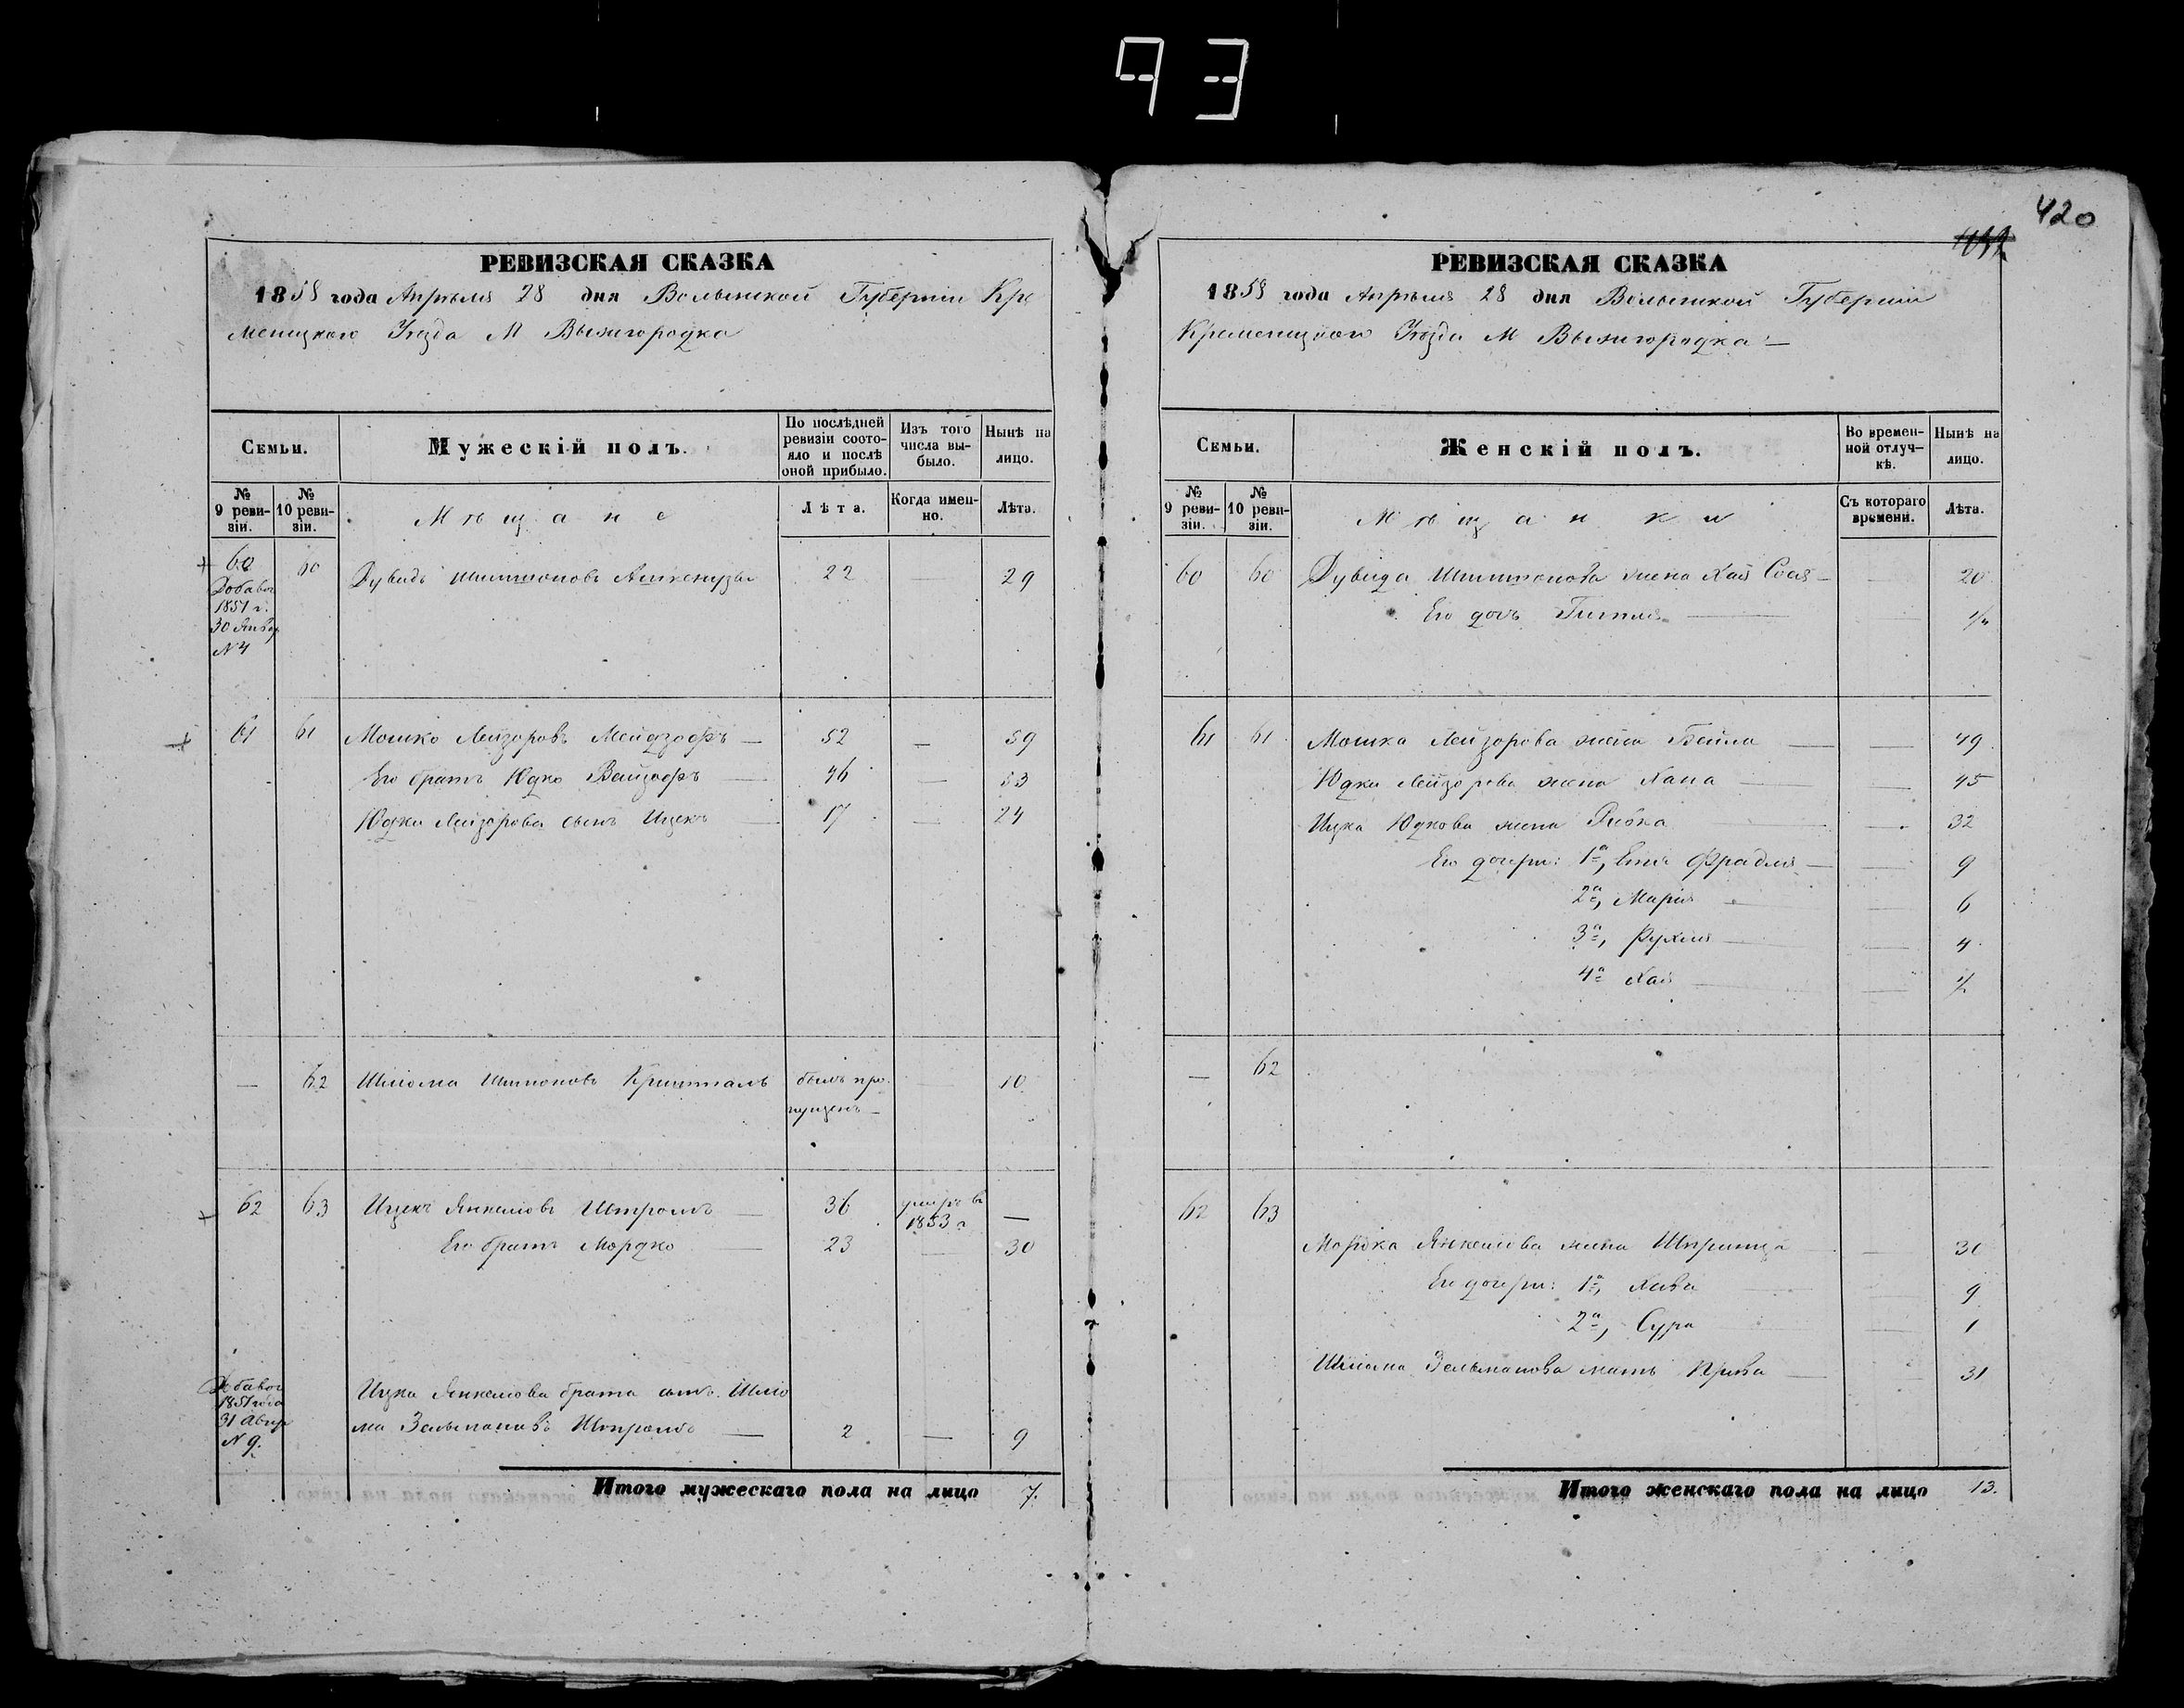 93
420
РЕВИЗСКАЯ СКАЗКА
1858 года Апрѣля 28 дня Волынской Губерніи Кре
менецкого Уѣзда М Вышгородка
Семьи.
Мужескій полъ.
По послѣдней ревизіи состояло и послѣ оной прибыло.
Изъ того числа выбыло.
Нынѣ на лицо.
№ 9 ревизіи.
№ 10 ревизіи.
Мѣщане
Лѣта.
Когда именно.
Лѣта.
60 60 Дувидъ Шимшоновъ Ашкенузы 22 29
Добавоч
1851 г.
30 Январ
N 4
61 61 Мошко Лейзоровъ Мейдзофъ — 52 — 59
Его братъ Юдко Вайзофъ — 46 — 53
Юдки Лейзорова сынъ Ицекъ — 17 — 24
— 62 Шлома Шимоновъ Кришталъ былъ про 10
пущенъ —
62 63 Ицекъ Янкелевъ Штромъ — 36 умеръ въ —
1853 г
Его братъ Мордко — 23 — 30
Добавоч
1851 года
31 Авгу
N 9.
Ицка Янкелова брата сынъ Шлио
ма Зельмановъ Штромъ — 2 — 9
Итого мужескаго пола на лицо 7.
РЕВИЗСКАЯ СКАЗКА
1858 года Апрѣля 28 дня Волынской Губерніи
Кременецкого Уѣзда М Вышгородка —
Семьи.
Женскій полъ.
Во временной отлучкѣ.
Нынѣ на лицо.
№ 9 ревизіи.
№ 10 ревизіи.
Мѣщанки
Съ котораго времени.
Лѣта.
60 60 Дувида Шимшонова жена Хая Сося — 20
Его дочь Гитля —
61 61 Мошка Лейзорова жена Бейла — 49
Юдки Лейзорова жена Хана — 45
Ицка Юдкова жена Ривка — 32
Его дочери: 1я, Етя Фрадля — 9
2я, Марія — 6
3я, Рухля — 4
4я Хая —
— 62
62 63
Мордка Янкелова жена Шпринца — 30
Его дочери: 1я, Хава — 9
2я, Сура — 1
Шлиома Зельманова мать Крива — 31
Итого женскаго пола на лицо 13.